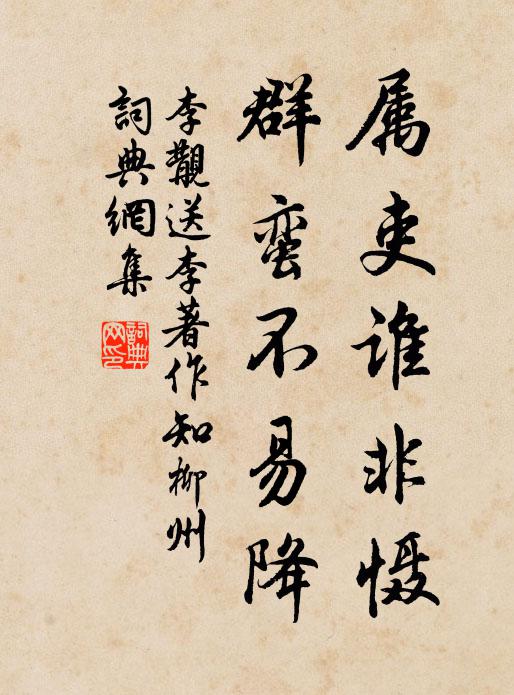 属吏谁非慑
群蛮不易降
李觏送李著作知柳州
词典網集
詞典網印